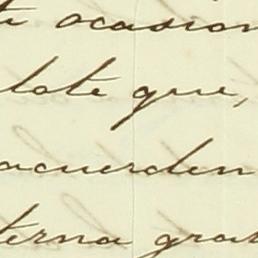 te ocasion
lote que,
acuerden
terna grat